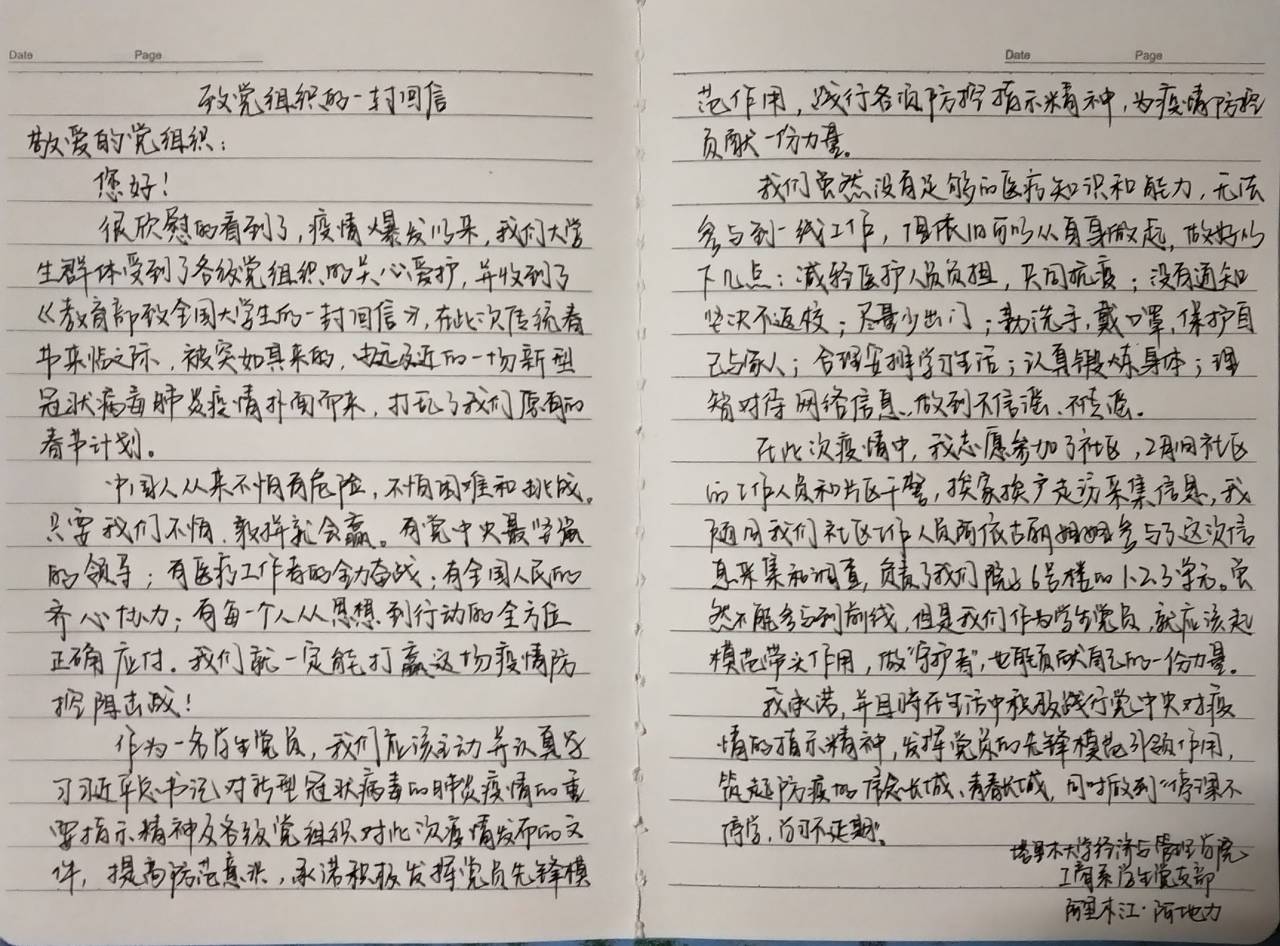 Date Page
致党组织的一封回信
敬爱的党组织：
您好！
很欣慰的看到了，疫情爆发以来，我们大学
生群体受到了各级党组织的关心爱护，并收到了
《教育部致全国大学生的一封回信》，在此次传统春
节来临之际，被突如其来的，由远及近的一场新型
冠状病毒肺炎疫情扑面而来，打乱了我们原有的
春节计划。
中国人从来不怕有危险，不怕困难和挑战。
只要我们不怕，敦拌就会赢。有党中央最坚强
的领导；有医疗工作者的全力奋战；有全国人民的
齐心协力；有每一个人从思想到行动的全方位
正确应付。我们就一定能打赢这场疫情防
控阻击战！
作为一名学生党员，我们应该主动并认真学
习习近平总书记对新型冠状病毒的肺炎疫情的重
要指示精神及各级党组织对此次疫情发布的文
件，提高防范意识，承诺积极发挥党员先锋模
Date Page
范作用，践行各项防控指示精神，为疫情防控
贡献一份力量。
我们虽然没有足够的医疗知识和能力，无法
参与到一线工作，但依旧可以从自身做起，做好以
下几点：减轻医护人员负担，共同抗疫；没有通知
坚决不返校；尽量少出门；勤洗手，戴口罩，保护自
己与家人；合理安排学习生活；认真锻炼身体；理
智对待网络信息、做到不信谣、不传谣。
在此次疫情中，我志愿参加了社区，2月1日社区
的工作人员和片区干警，挨家挨户走访采集信息，我
随同我们社区工作人员阿依古丽姐姐参与了这次信
息采集和调查，负责了我们院子6号楼的1.2.3单元。虽
然不能参与到前线，但是我们作为学生党员，就应该起
模范带头作用，做“守护者”，也能贡献自己的一份力量。
我承诺，并且将在生活中积极践行党中央对疫
情的指示精神，发挥党员的先锋模范引领作用，
筑起防疫的信念长城、青春长城，同时做到“停课不
停学，学习不延期”。
塔里木大学经济与管理学院
工商系学生党支部
阿里木江·阿地力